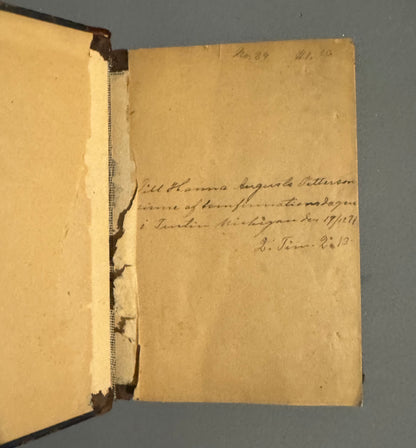 No. 29
Till Hanna Augusta Petterson
minne af konfirmationsdagen
i Tustin Michigan den
2: Tim. 2: 19